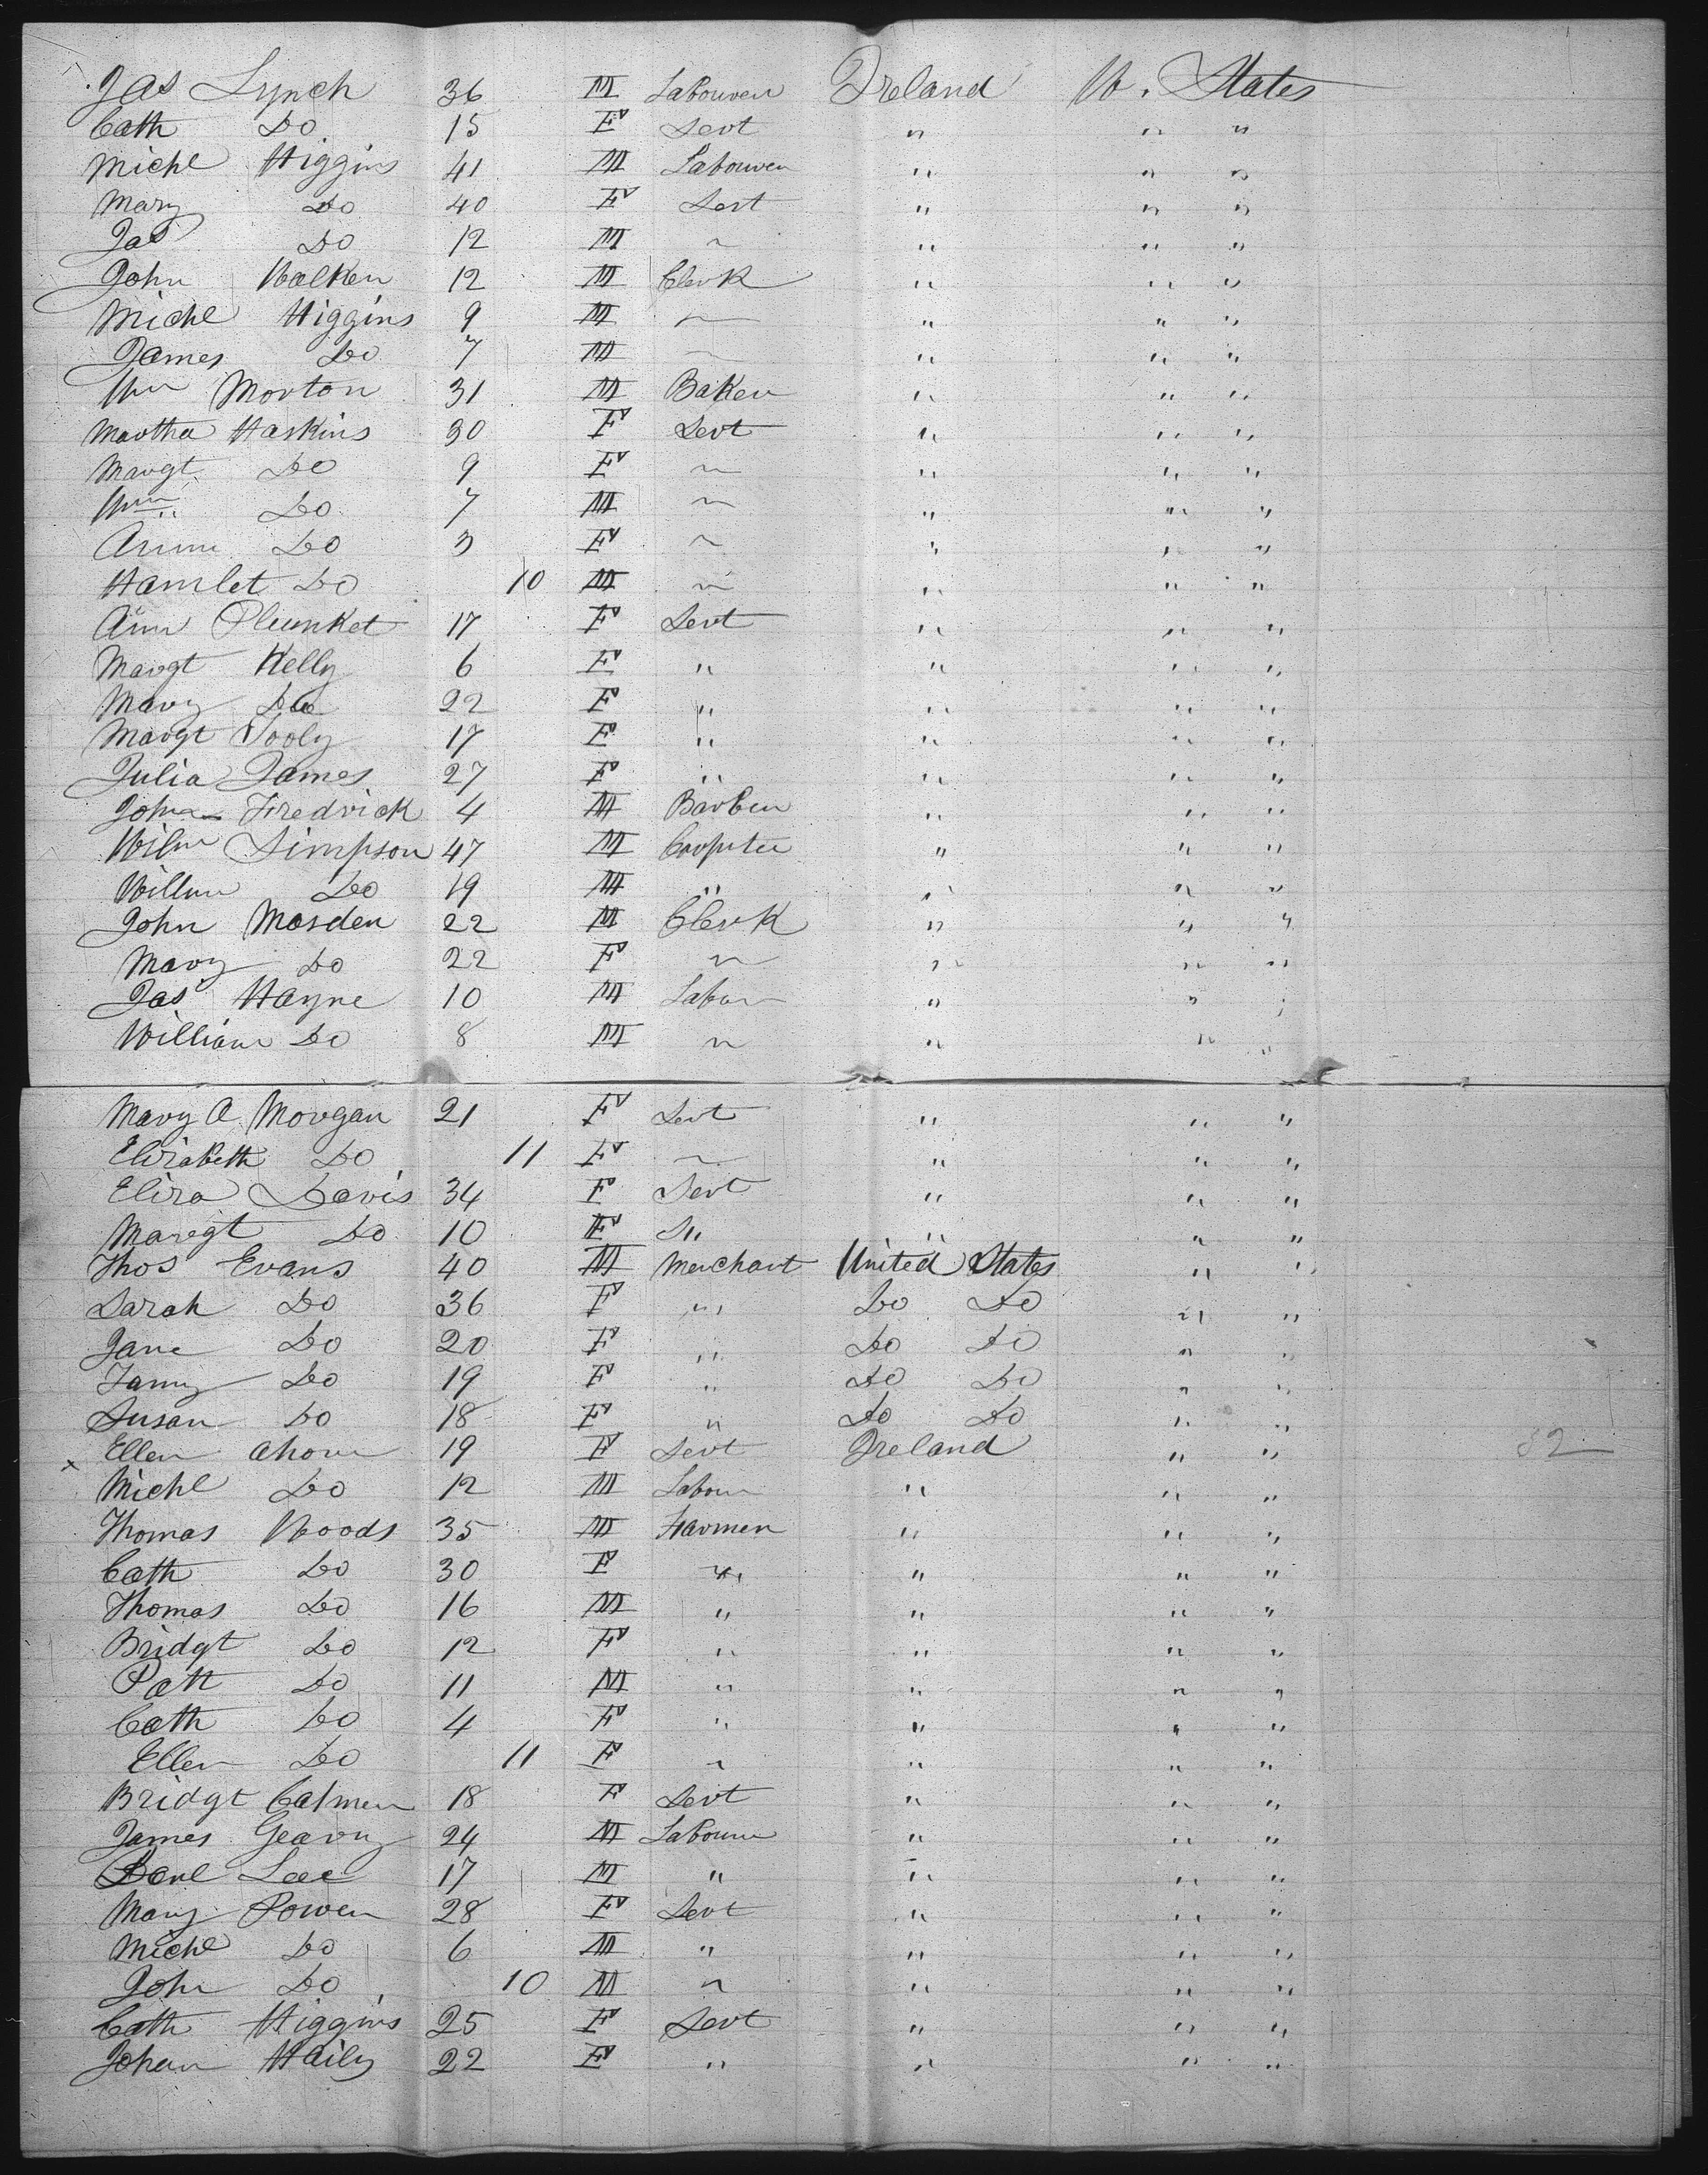 Jas Lynch 36 M Labourer Ireland U. States
Cath Do 15 F Servt " " "
Michl Higgins 41 M Labourer " " "
Mary Do 40 F Sert " " "
Jas Do 12 M ~ " " "
John Walker 12 M Clerk " " "
Michl Higgins 9 M ~ " " "
James Do 7 M ~ " " "
Wm Morton 31 M Baker " " "
Martha Haskins 30 F Servt " " "
Margt Do 9 F ~ " " "
Wm Do 7 M ~ " " "
Do 3 F ~ " " "
Hamlet Do 10 M ~ " " "
Ann Plunket 17 F Servt " " "
Margt Kelly 6 F " " " "
Mary Do 22 F " " " "
Margt 17 F " " " "
Julia James 27 F " " " "
John Fredrick 4 M Barber " " "
Wilm Simpson 47 M " " "
Willm Do 19 M " " " "
John Masden 22 M Clerk " " "
Mary Do 22 F " " " "
Jas Hayne 10 M Labor " " "
William Do 8 M " " " "
Mary A Morgan 21 F Servt " " "
Elizabeth Do 11 F ~ " " "
Eliza Davis 34 F Servt " " "
Maregt Do 10 F " " "
Thos Evans 40 M Merchant United States " "
Sarah Do 36 F " Do Do " "
Jane Do 20 F " Do Do " "
Fanny Do 19 F " Do Do " "
Susan Do 18 F " Do Do " "
x Ellen 19 F Servt Ireland " " 52
Michl Do 12 M Labour " " "
Thomas Woods 35 M Farmer " " "
Cath Do 30 F " " " "
Thomas Do 16 M " " " "
Bridgt Do 12 F " " " "
Patt Do 11 M " " " "
Cath Do 4 F " " " "
Ellen Do 11 F " " " "
Bridgt 18 F Servt " " "
James Geary 24 M Labourer " " "
Danl Lee 17 M " " " "
Mary Power 28 F Servt " " "
Michl Do 6 M " " " "
John Do 10 M " " " "
Cath Higgins 25 F Servt " " "
Johan Haily 22 F " " " "